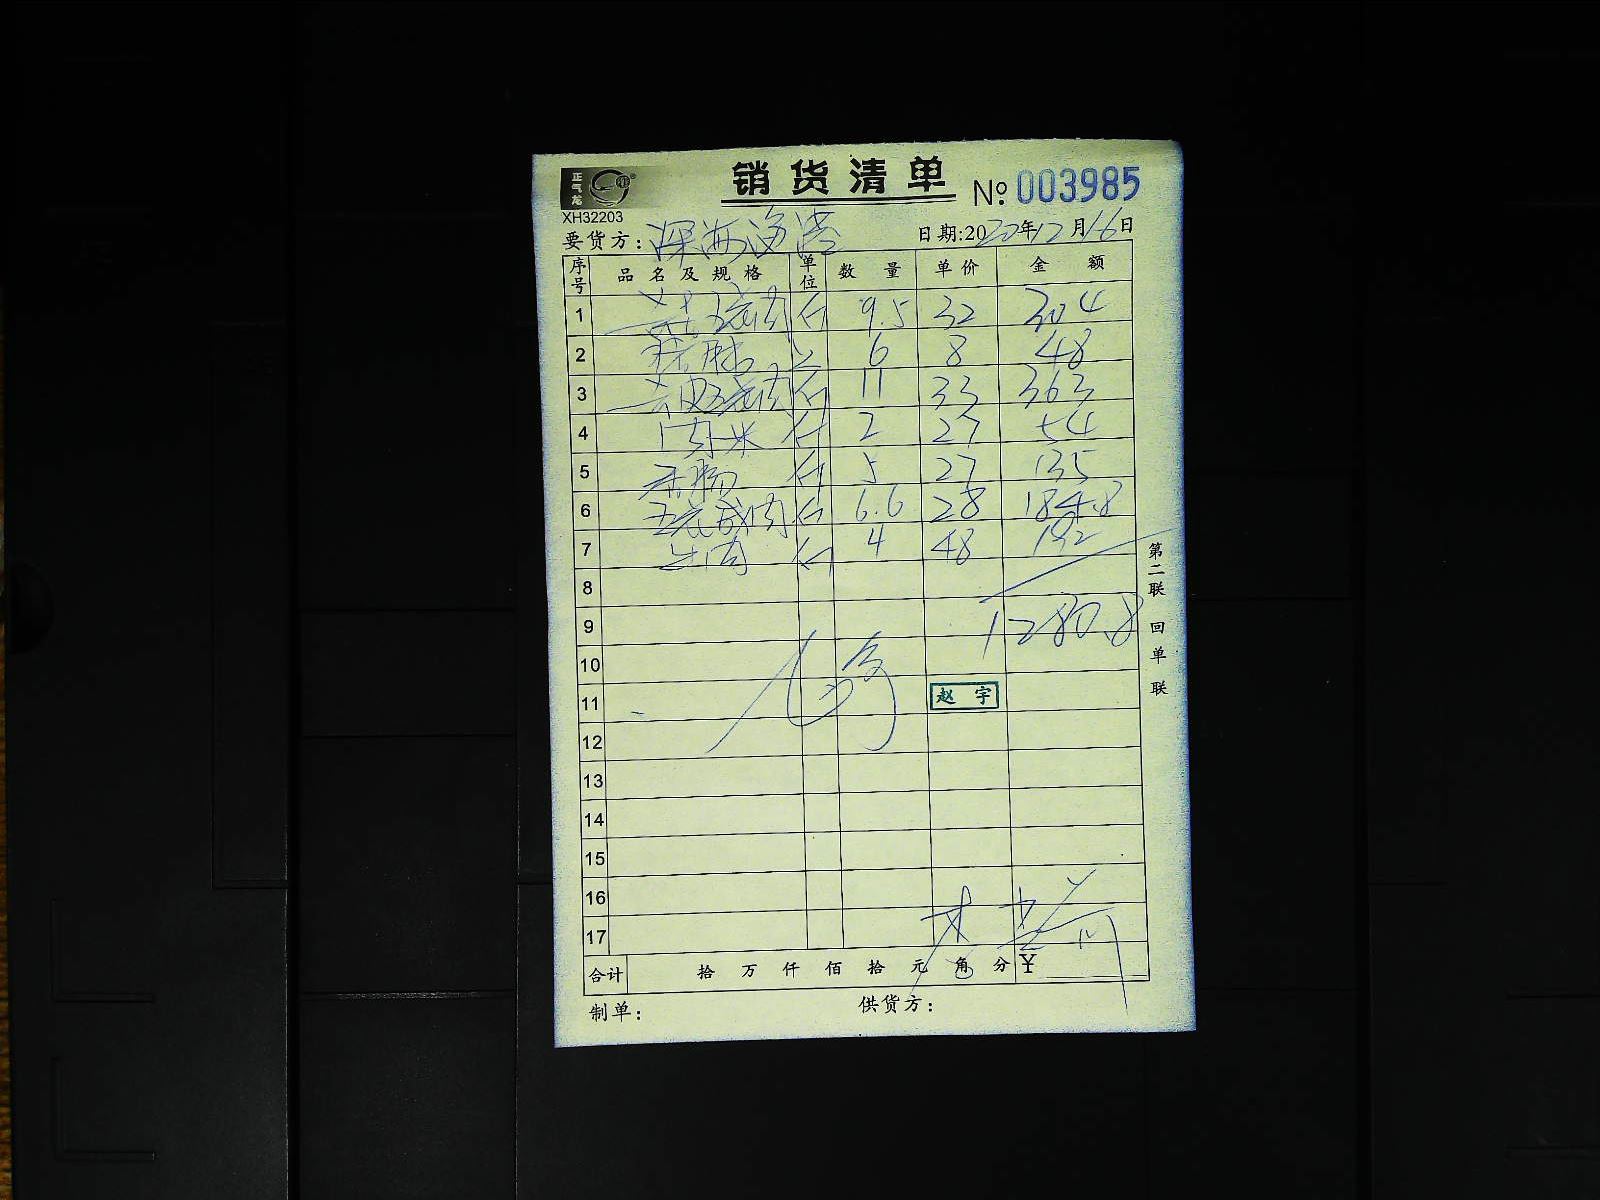 正气龙
销货清单 № 003985
XH32203
要货方: 深海渔港 日期:2020年12月16日
序号 品名及规格 单位 数量 单价 金额
1 五花肉 斤 9.5 32 304
2 6 8 48
3 五花肉 斤 11 33 363
4 肉米 斤 2 27 54
5 斤 5 27 135
6 五花咸肉 斤 6.6 28 184.8
7 牛肉 斤 4 48 192
8
9 1280.8
10
11 赵宇
12
13
14
15
16
17
合计 拾 万 仟 佰 拾 元 角 分 ¥
制单: 供货方:
第二联 回单联